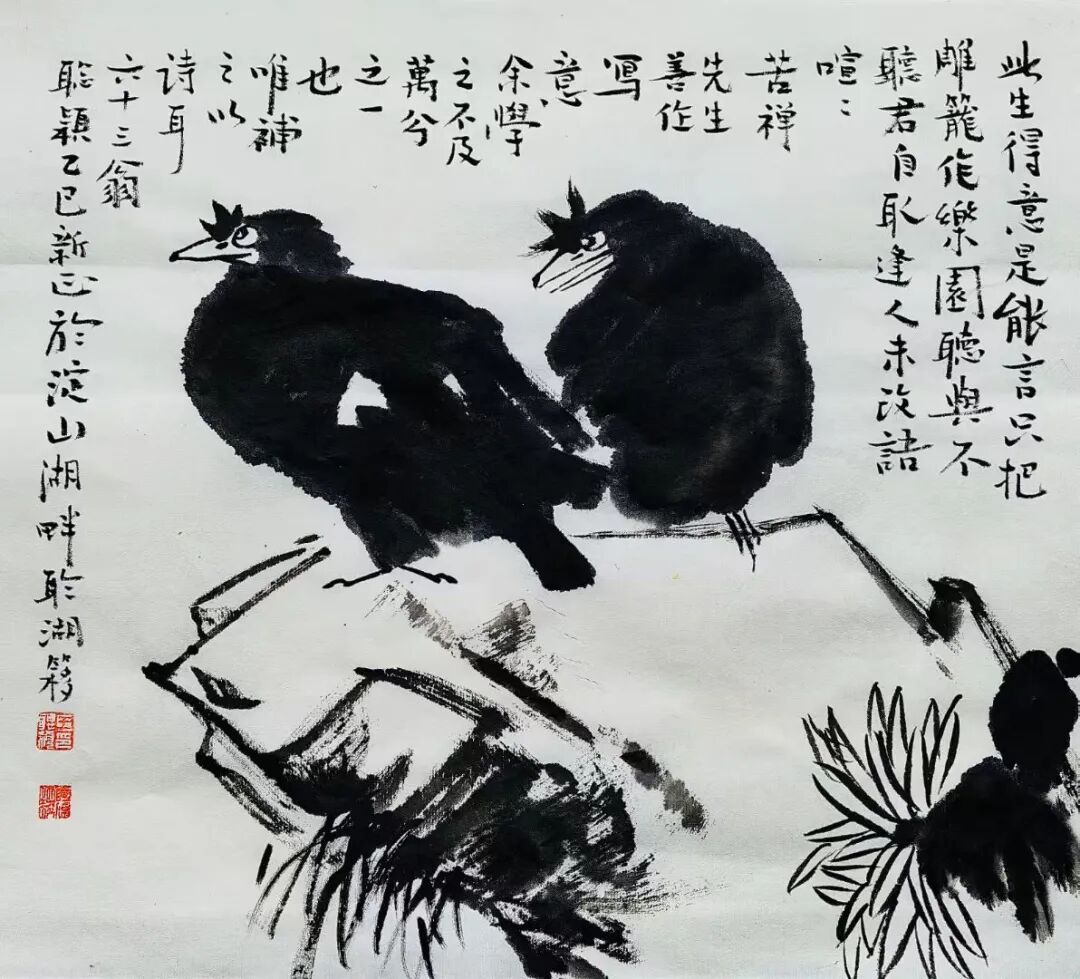 此生得意是能言只把
雕籠作樂園聽與不
聽君自取逢人未改語
喧〻
苦禅
先生
善作
寫
意
余學
之不及
萬分
之一
也
唯補
之以
诗耳
六十三翁
聡穎乙巳新正於淀山湖畔聆湖簃